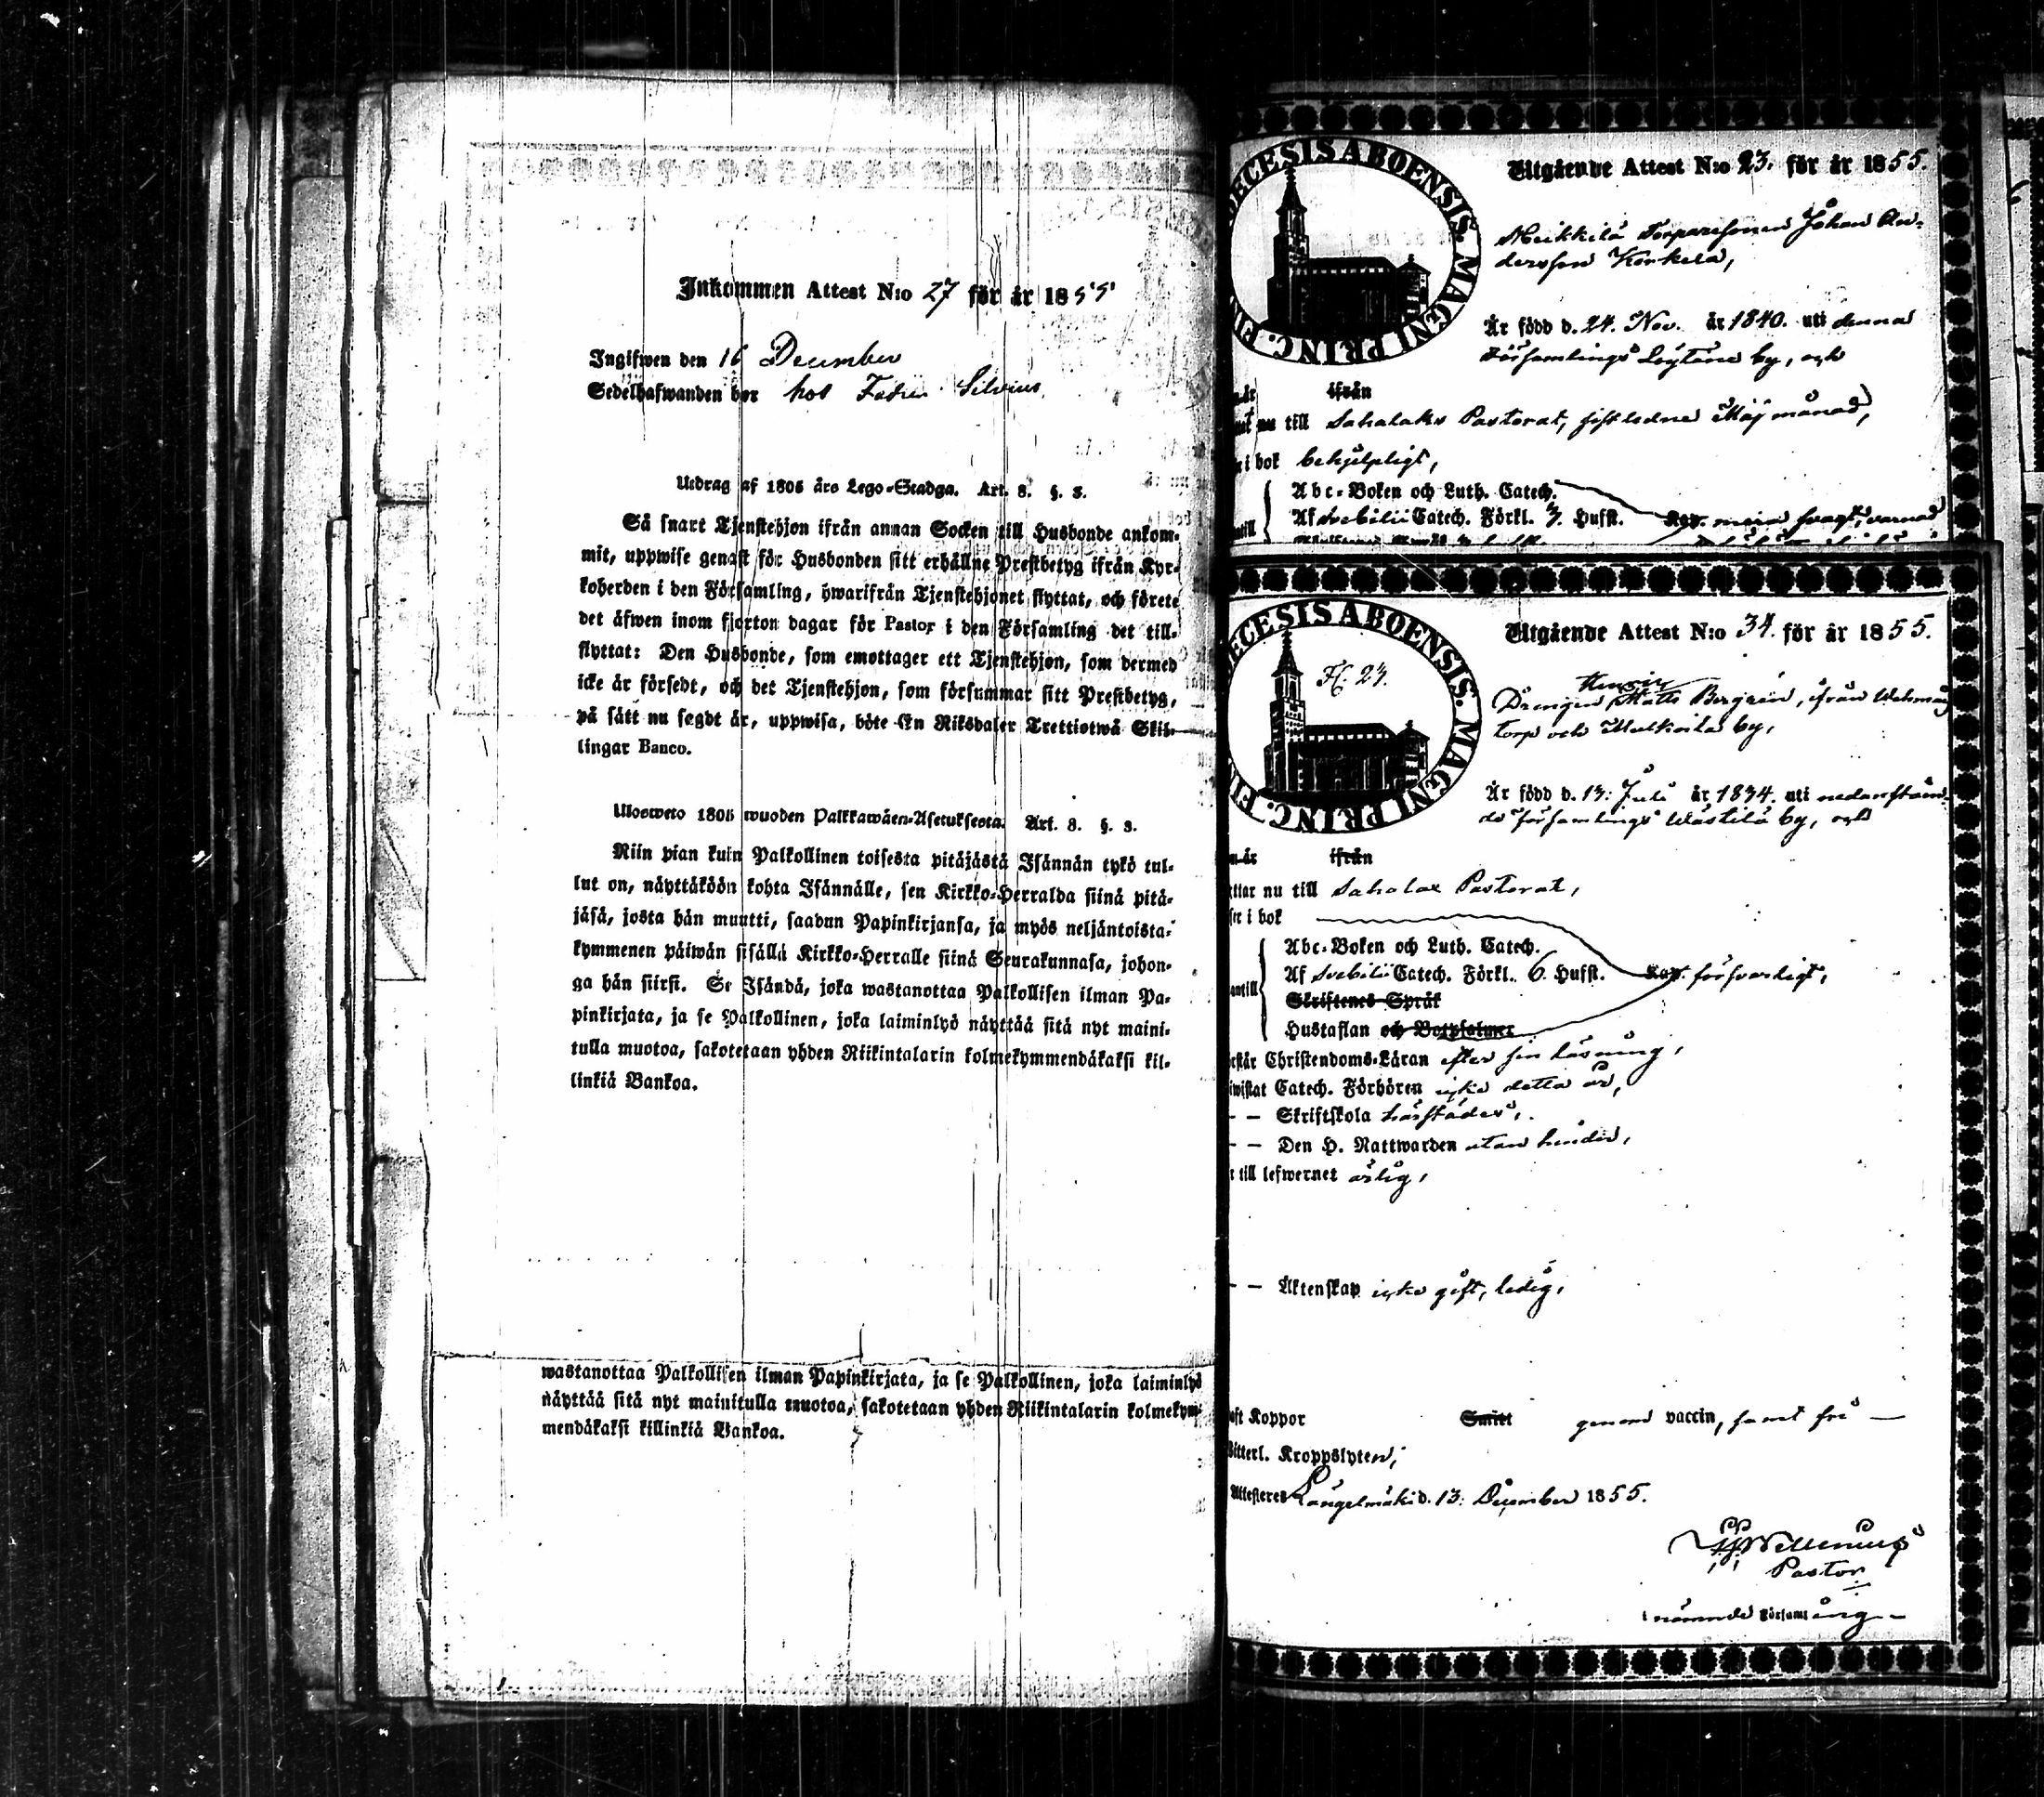 Inkommen Attest N:o 27 för år 1855
Ingifwen den 16 December
Sedelhafwanden bor hos Silvius
Utdrag af 1805 års Lego-Stadga. Art. 8. §. 3.
Så snart Tjenstehjon ifrån annan Socken till Husbonde ankom-
mit, uppwise genast för Husbonden sitt erhållne Prestbetyg ifrån Kyr-
koherden i den Församling, hwarifrån Tjenstehjonet flyttat, och förete
det äfwen inom fjorton dagar för Pastor i den Församling det till-
flyttat: Den Husbonde, som emottager ett Tjenstehjon, som dermed
icke är försedt, och det Tjenstehjon, som försummar sitt Prestbetyg,
på sätt nu sagdt är, uppwisa, böte En Riksdaler Trettiotwå Skil-
lingar Banco.
Ulosweto 1805 wuoden Palkkawäen-Asetuksesta. Art. 8. §. 3.
Niin pian kuin Palkollinen toisesta pitäjästä Isännän tykö tul-
lut on, näyttäköön kohta Isännälle, sen Kirkko-Herralda siinä pitä-
jäsä, josta hän muutti, saadun Papinkirjansa, ja myös neljäntoista-
kymmenen päiwän sisällä Kirkko-Herralle siinä Seurakunnasa, johon-
ga hän siirsi. Se Isändä, joka wastanottaa Palkollisen ilman Pa-
pinkirjata, ja se Palkollinen, joka laiminlyö näyttää sitä nyt maini-
tulla muotoa, sakotetaan yhden Riikintalarin kolmekymmendäkaksi kil-
linkiä Bankoa.
wastanottaa Palkollisen ilman Papinkirjata, ja se Palkollinen, joka laiminlyö
näyttää sitä nyt mainitulla muotoa, sakotetaan yhden Riikintalarin kolmekym-
mendäkaksi killinkiä Bankoa.
DIECESIS ABOENSIS. MAGNI PRINC. FIN
Utgående Attest N:o 23. för år 1855.
Meikkilä Torparesonen Johan An-
dersson Korkela,
Är född d. 24. Nov. år 1840. uti denna
Församlings Leytäne by, och
år ifrån
nu till Sahalaks Pastorat, sistledne Maj månad,
i bok behjelpligt,
Abc-Boken och Luth. Catech.
Af Svebilii Catech. Förkl. 3. Hufst. Kap. svagt, varnad
DIECESIS ABOENSIS. MAGNI PRINC. FIN
H. 24.
Utgående Attest N:o 34. för år 1855.
Henric
Drengen Matts Bergren, ifrån
torp och Mulkoila by,
Är född d. 13. Juli år 1834. uti nedanståen-
de församlings Västilä by, och
år ifrån
ttar nu till Sahalax Pastorat,
ser i bok
Abc-Boken och Luth. Catech.
Af Svebilii Catech. Förkl. 6. Hufst. Kap. försvarligt,
antill
Skriftenes Språk
Hustaflan och Botpsalmer
rstår Christendoms-Läran efter sin läsning,
iwistat Catech. Förhören icke detta år,
– – Skriftskola härstädes,
– – Den H. Nattwarden utan hinder,
t till lefwernet ärlig,
– – Äktenskap icke gift, ledig,
aft Koppor Smitt genom vaccin, samt fri —
Witterl. Kroppslyten,
Attesteres Längelmäki d. 13. December 1855.
Wellenius
Pastor
i nämnde Församling –